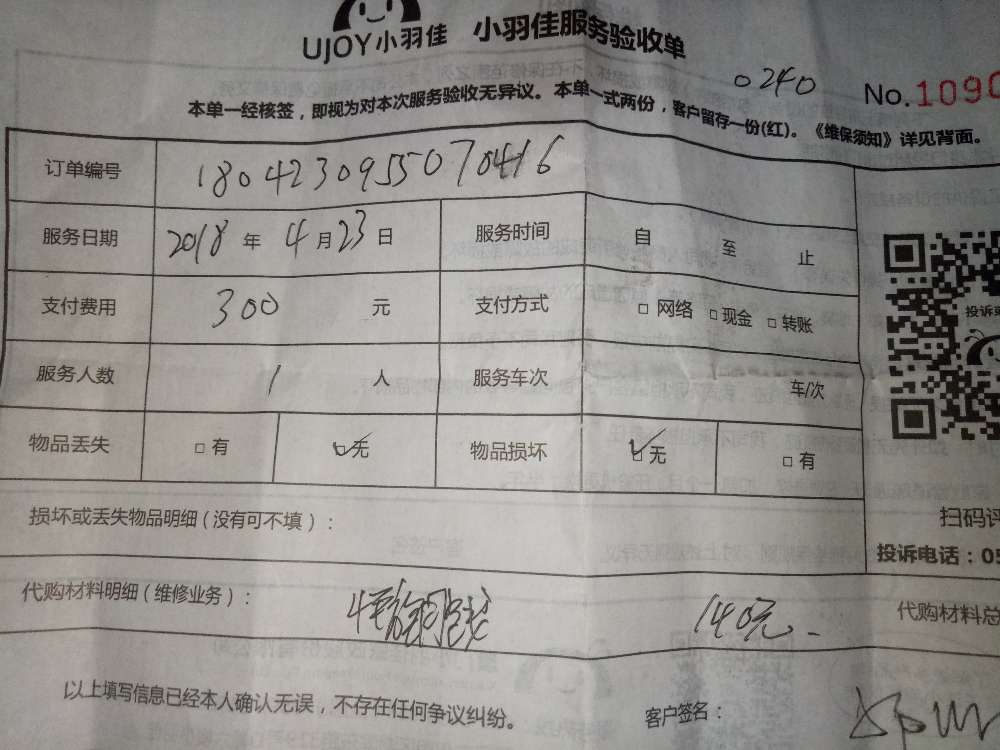 UJOY小羽佳 小羽佳服务验收单
0240 No.1090
本单一经核签，即视为对本次服务验收无异议。本单一式两份，客户留存一份(红)。《维保须知》详见背面。
订单编号 1804230955070416
服务日期 2018 年 4 月 23 日 服务时间 自 至 止
支付费用 300 元 支付方式 □ 网络 □ 现金 □ 转账
服务人数 1 人 服务车次 车/次
物品丢失 □ 有 ☑ 无 物品损坏 ☑ 无 □ 有
投诉
损坏或丢失物品明细（没有可不填）：
扫码评
投诉电话：05
代购材料明细（维修业务）： 140元 代购材料总
以上填写信息已经本人确认无误，不存在任何争议纠纷。 客户签名：